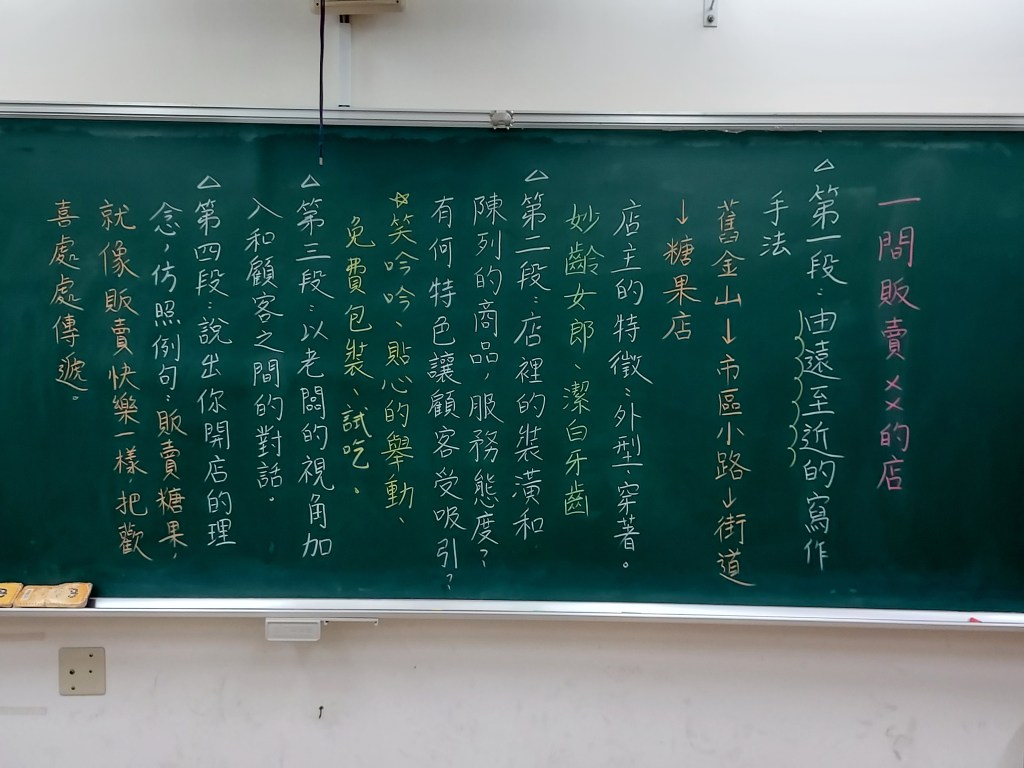 一間販賣××的店
△第一段：由遠至近的寫作
手法
舊金山→市區小路→街道
→糖果店
店主的特徵：外型、穿著。
妙齡女郎、潔白牙齒
△第二段：店裡的裝潢和
陳列的商品，服務態度？
有何特色讓顧客受吸引？
☆笑吟吟、貼心的舉動、
免費包裝、試吃。
△第三段：以老闆的視角加
入和顧客之間的對話。
△第四段：說出你開店的理
念，仿照例句：販賣糖果，
就像販賣快樂一樣，把歡
喜處處傳遞。